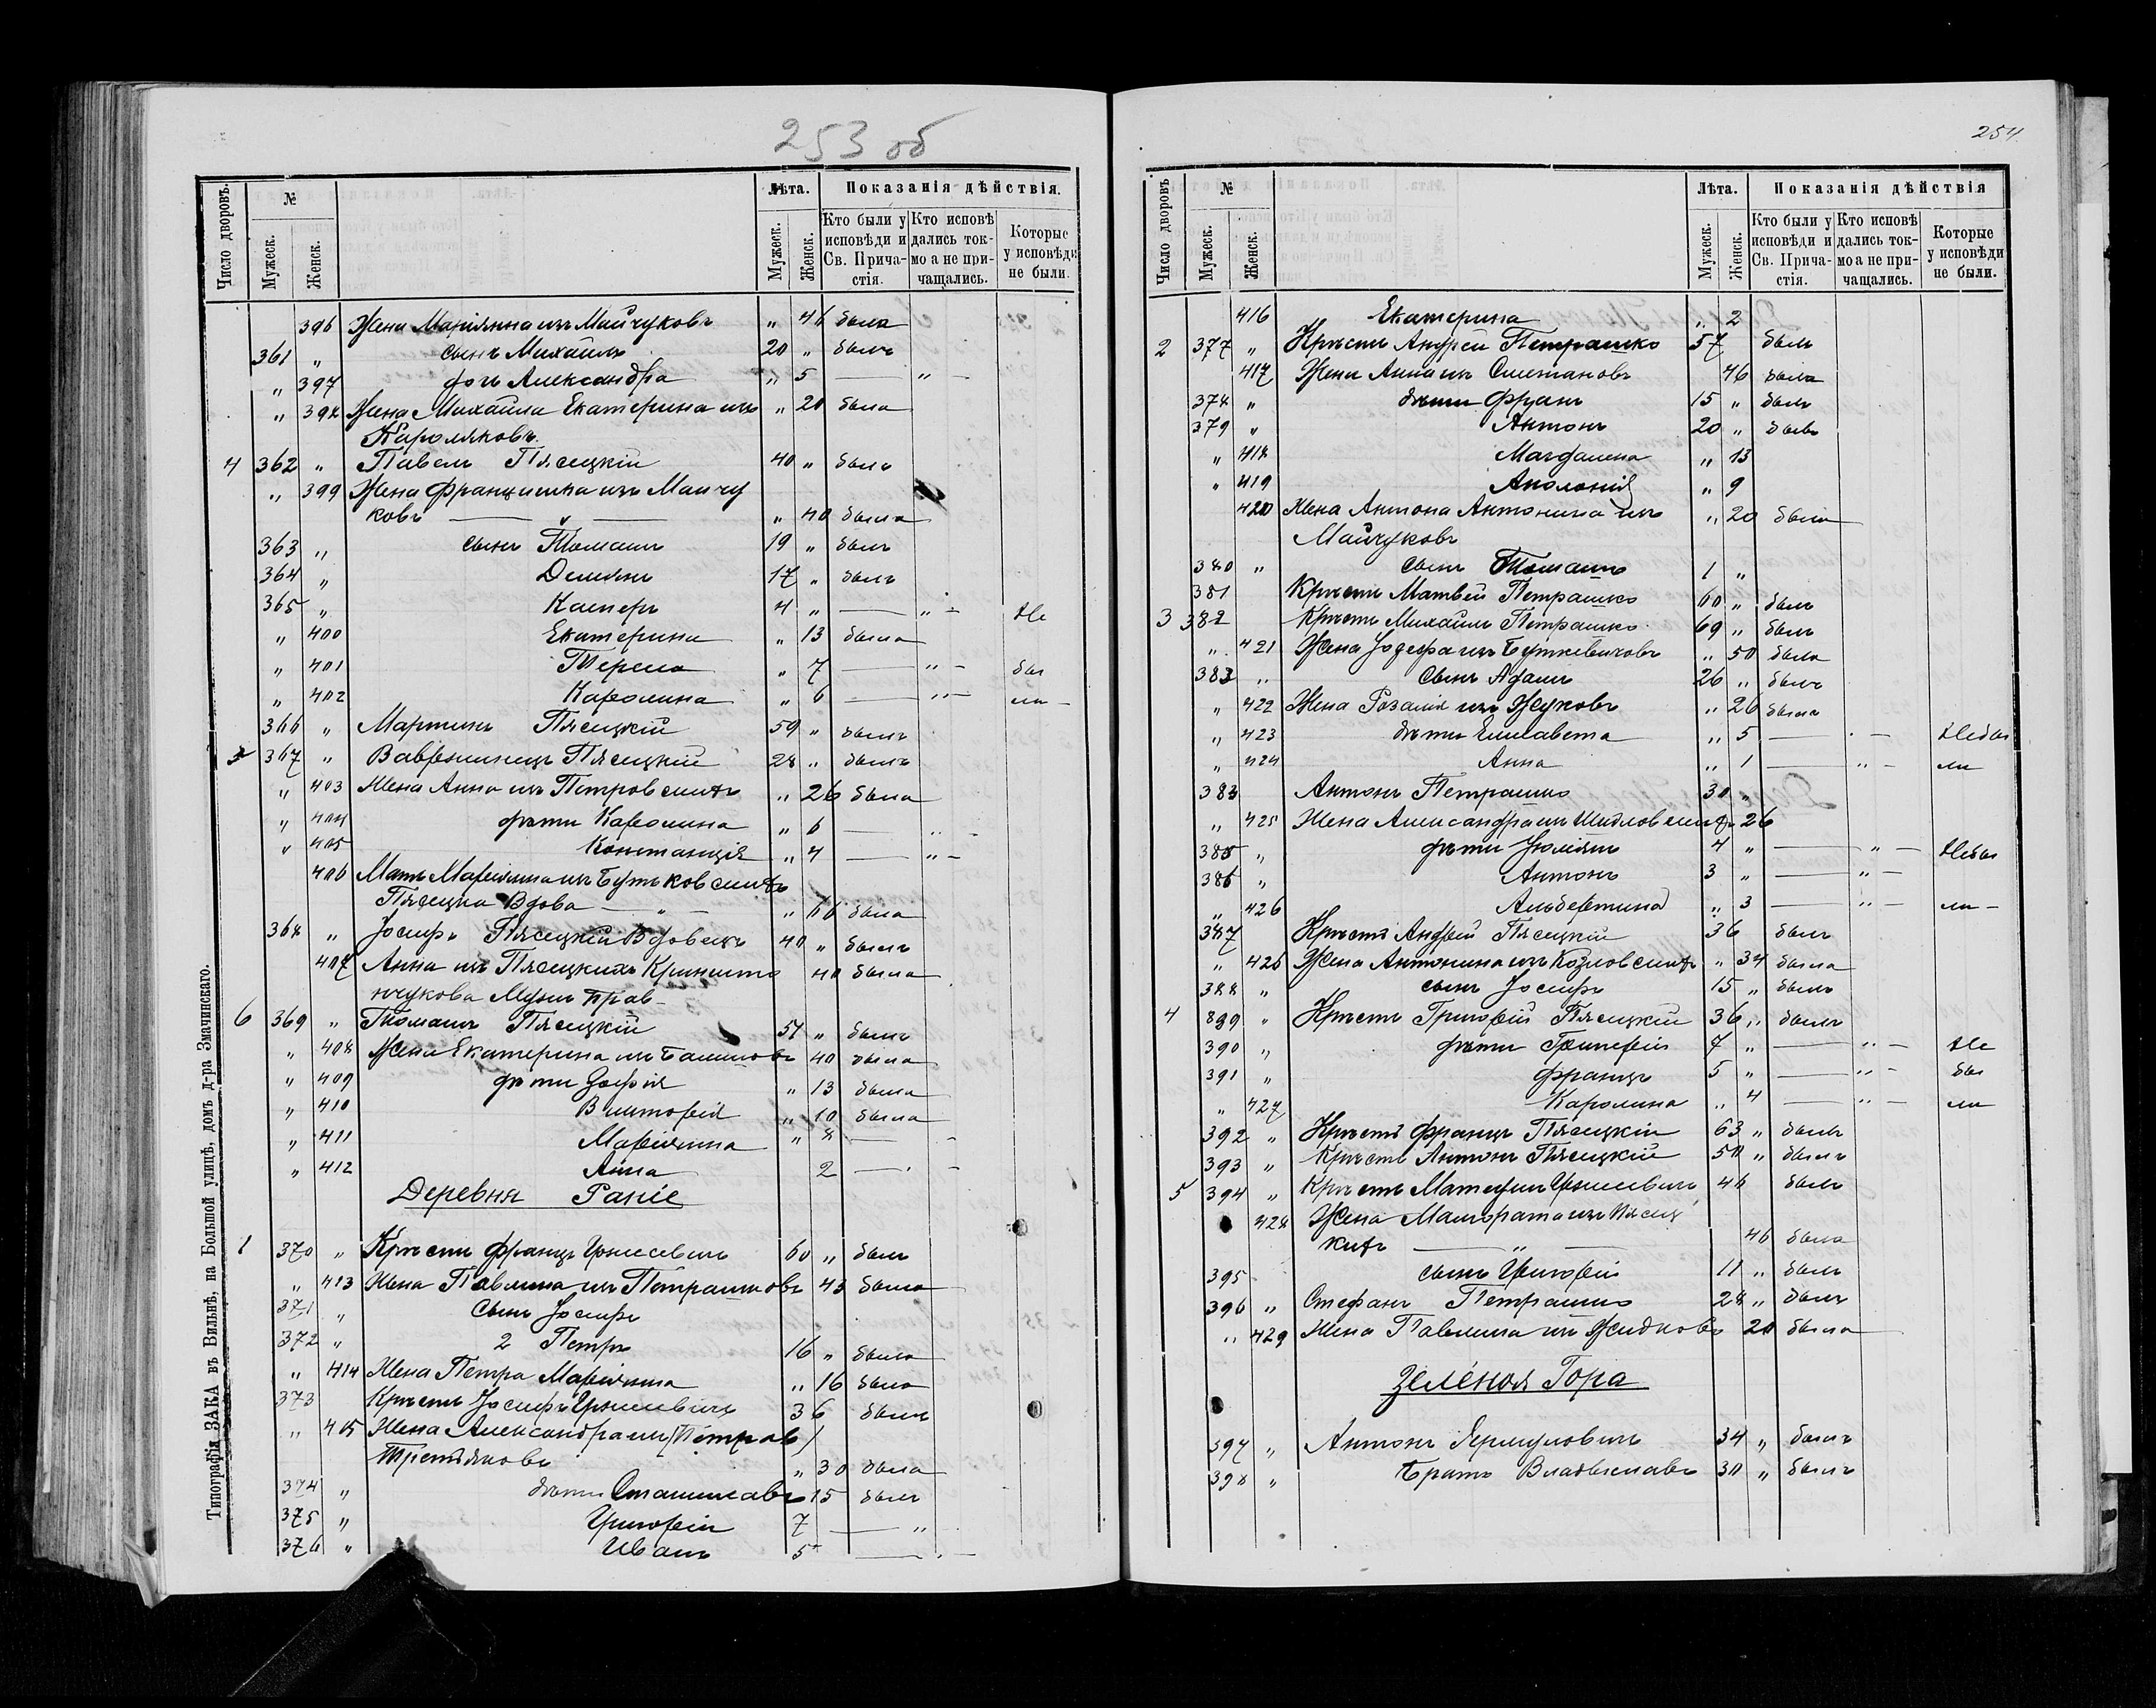 253 об
Число дворовъ.
№
Мужеск.
Женск.
Лѣта.
Мужеск.
Женск.
Показанія дѣйствія.
Кто были у исповѣди и Св. Прича-стія.
Кто исповѣ дались ток-мо а не при-чащались.
Которые у исповѣди не были.
396 Жена Маріянна изъ Майчуковъ " 46 была
361 " сынъ Михаилъ 20 " былъ
" 397 дочь Александра " 5 — " —
" 398 Жена Михаила Екатерина изъ " 20 была
Кароляковъ.
4 362 " Павелъ Пясецкій 40 " былъ
" 399 Жена Францишка изъ Майчу
ковъ — " — " 40 была
363 " сынъ Томашъ 19 " былъ
364 " Демянъ 17 " былъ
365 " Касперъ 4 " — " — Не
" 400 Екатерина " 13 была
" 401 Тереса " 7 — " — бы
" 402 Каролина " 6 — " — ли —
366 " Мартинъ Пясецкій 59 " былъ
5 367 " Вавренинецъ Пясецкій 28 " былъ
" 403 Жена Анна изъ Петровскихъ " 26 была
" 404 дѣти Каролина " 6 — " —
" 405 Констанція " 4 — " —
406 Мать Маріянна изъ Бутьковскихъ
Пясецка Вдова — " — " 66 была
368 " Іосифъ Пясецкій Вдовецъ 40 " былъ
407 Анна изъ Пясецкихъ 40 была
нчукова Мужъ Прав-
6 369 " Томашъ Пясецкій 54 " былъ
" 408 Жена Екатерина изъ 40 была
" 409 дѣти Зофія " 13 была
" 410 Викторія " 10 была
" 411 Маріянна " 8 — —
" 412 Анна 2 — —
Деревня Раніе
1 370 " Крѣстъ Францъ 60 " былъ
" 413 Жена Павлина изъ Петрашковъ 43 была
371 " Сынъ Іосифъ
372 " 2 Петръ 16 " была
" 414 Жена Петра Маріянна " 16 была
373 Крѣстъ Іосифъ 36 былъ
" 415 Жена Александра изъ (Петров)
Третьяковъ " 30 была
374 " дѣти Станиславъ 15 былъ
375 " Григорій 7 — "
376 " Иванъ 5 — " —
Типографія ЗАКА въ Вильнѣ, на Большой улицѣ, домъ д-ра Змачинскаго.
254
Число дворовъ
№
Мужеск.
Женск.
Лѣта.
Мужеск.
Женск.
Показанія дѣйствія
Кто были у исповѣди и Св. Прича-стія.
Кто исповѣ дались ток-мо а не при-чащались.
Которые у исповѣди не были.
416 Екатерина " 2
2 377 " Крѣстъ Андрей Петрашко 57 былъ
417 Жена Анна изъ Сметановъ 46 была
378 " дѣти Францъ 15 " былъ
379 " Антонъ 20 " былъ
" 418 Магдалена " 13
" 419 Аполонія " 9
420 Жена Антона Антонина изъ " 20 была
Майчуковъ
380 " сынъ Томашъ 1 "
381 Крѣстъ Матвей Петрашко 60 " былъ
3 382 Крѣстъ Михаилъ Петрашко 69 " былъ
" 421 Жена Іозефа изъ Буткевичовъ " 50 была
383 " Сынъ Адамъ 26 " былъ
" 422 Жена Розалія изъ Жуковъ " 26 была
" 423 дѣти Елисавета " 5 — " — Небы
" 424 Анна " 1 — " — ли
383 Антонъ Петрашко 30 "
" 425 Жена Александра изъ Шидловскихъ 26
385 " дѣти Юліянъ 4 " — " — Небы
386 " Антонъ 3 " — " —
" 426 Альбертина " 3 — " — ли —
387 Крѣстъ Андрей Пясецкій 36 былъ
" 426 Жена Антонина изъ Козловскихъ " 34 была
388 " сынъ Іосифъ 15 " былъ
4 839 " Крѣстъ Григорій Пясецкій 36 " былъ
390 " дѣти 7 " — " — Не
391 " Францъ 5 " — " — бы
" 427 Каролина " 4 — " — ли
392 " Крѣстъ Францъ Пясецкій 63 " былъ
393 " Крѣстъ Антонъ Пясецкій 50 " былъ
5 394 " Крѣстъ 46 былъ
428 Жена Малгората изъ Пясец
кихъ — " — 46 была
395 сынъ Григорій 11 " былъ
396 " Стефанъ Петрашко 28 " былъ
" 429 Жена Павлина изъ Жидковъ 20 была
Зелёная Гора
397 " Антонъ Ярмуловичъ 34 " былъ
398 " Братъ Владыславъ 30 " былъ